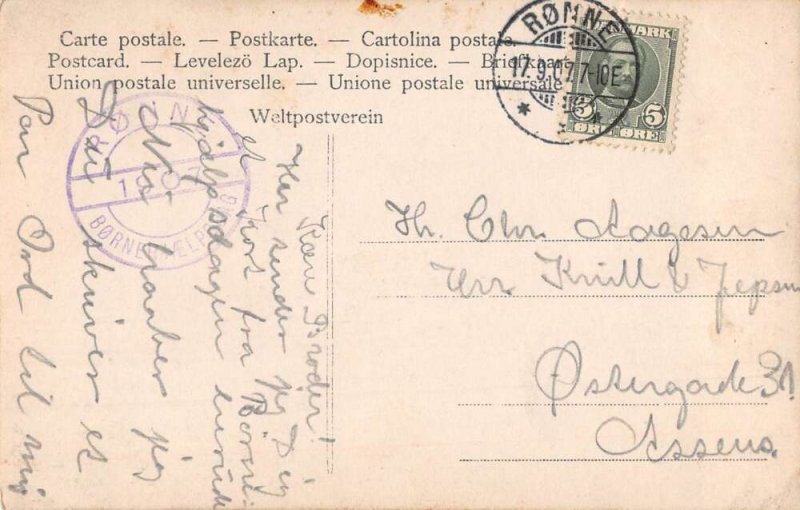 Carte postale. — Postkarte. — Cartolina postale.
Postcard. — Levelezö Lap. — Dopisnice. — Briefkaart
Union postale universelle. — Unione postale universale
Weltpostverein
RØNNE
17.9.07. 7-10E
DANMARK
5 5
ØRE ØRE
RØNNE
1907
BØRNEHJÆLPSDAG
Kære Broder!
Her sender jeg Dig
et Kort fra Börne-
hjælpsdagen
Nu haaber jeg
Du skriver et
Par Ord til mig
Hr. Chr. Aagesen
Herr Krull & Jepsen
Østergade 31
Assens.